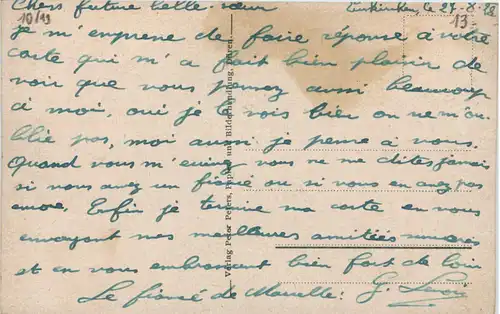 Chère future belle-sœur Euskirchen, le 27-8-23
10/13
13.-
je m'emprene de faire réponse à votre
carte qui m'a fait bien plaisir de
voir que vous pensez aussi beaucoup
à moi, oui je le vois bien on ne m'ou-
blie pas, moi aussi je pense à vous.
Quand vous m'écrivez vous ne me dites jamais
si vous avez un fiancé ou si vous en avez pas
encore. Enfin je termine ma carte en vous
envoyant mes meilleures amitiés
et en vous embrassant bien fort de loin
Le fiancé de Marcelle: G.
Verlag Peter Peters, Papier- und Bilderhandlung, Düren.